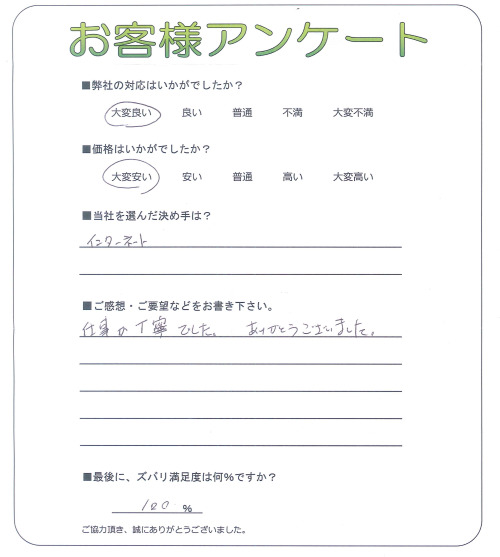 お客様アンケート
■弊社の対応はいかがでしたか？
大変良い 良い 普通 不満 大変不満
■価格はいかがでしたか？
大変安い 安い 普通 高い 大変高い
■当社を選んだ決め手は？
インターネット
■ご感想・ご要望などをお書き下さい。
仕事が丁寧でした。 ありがとうございました。
■最後に、ズバリ満足度は何％ですか？
100 ％
ご協力頂き、誠にありがとうございました。